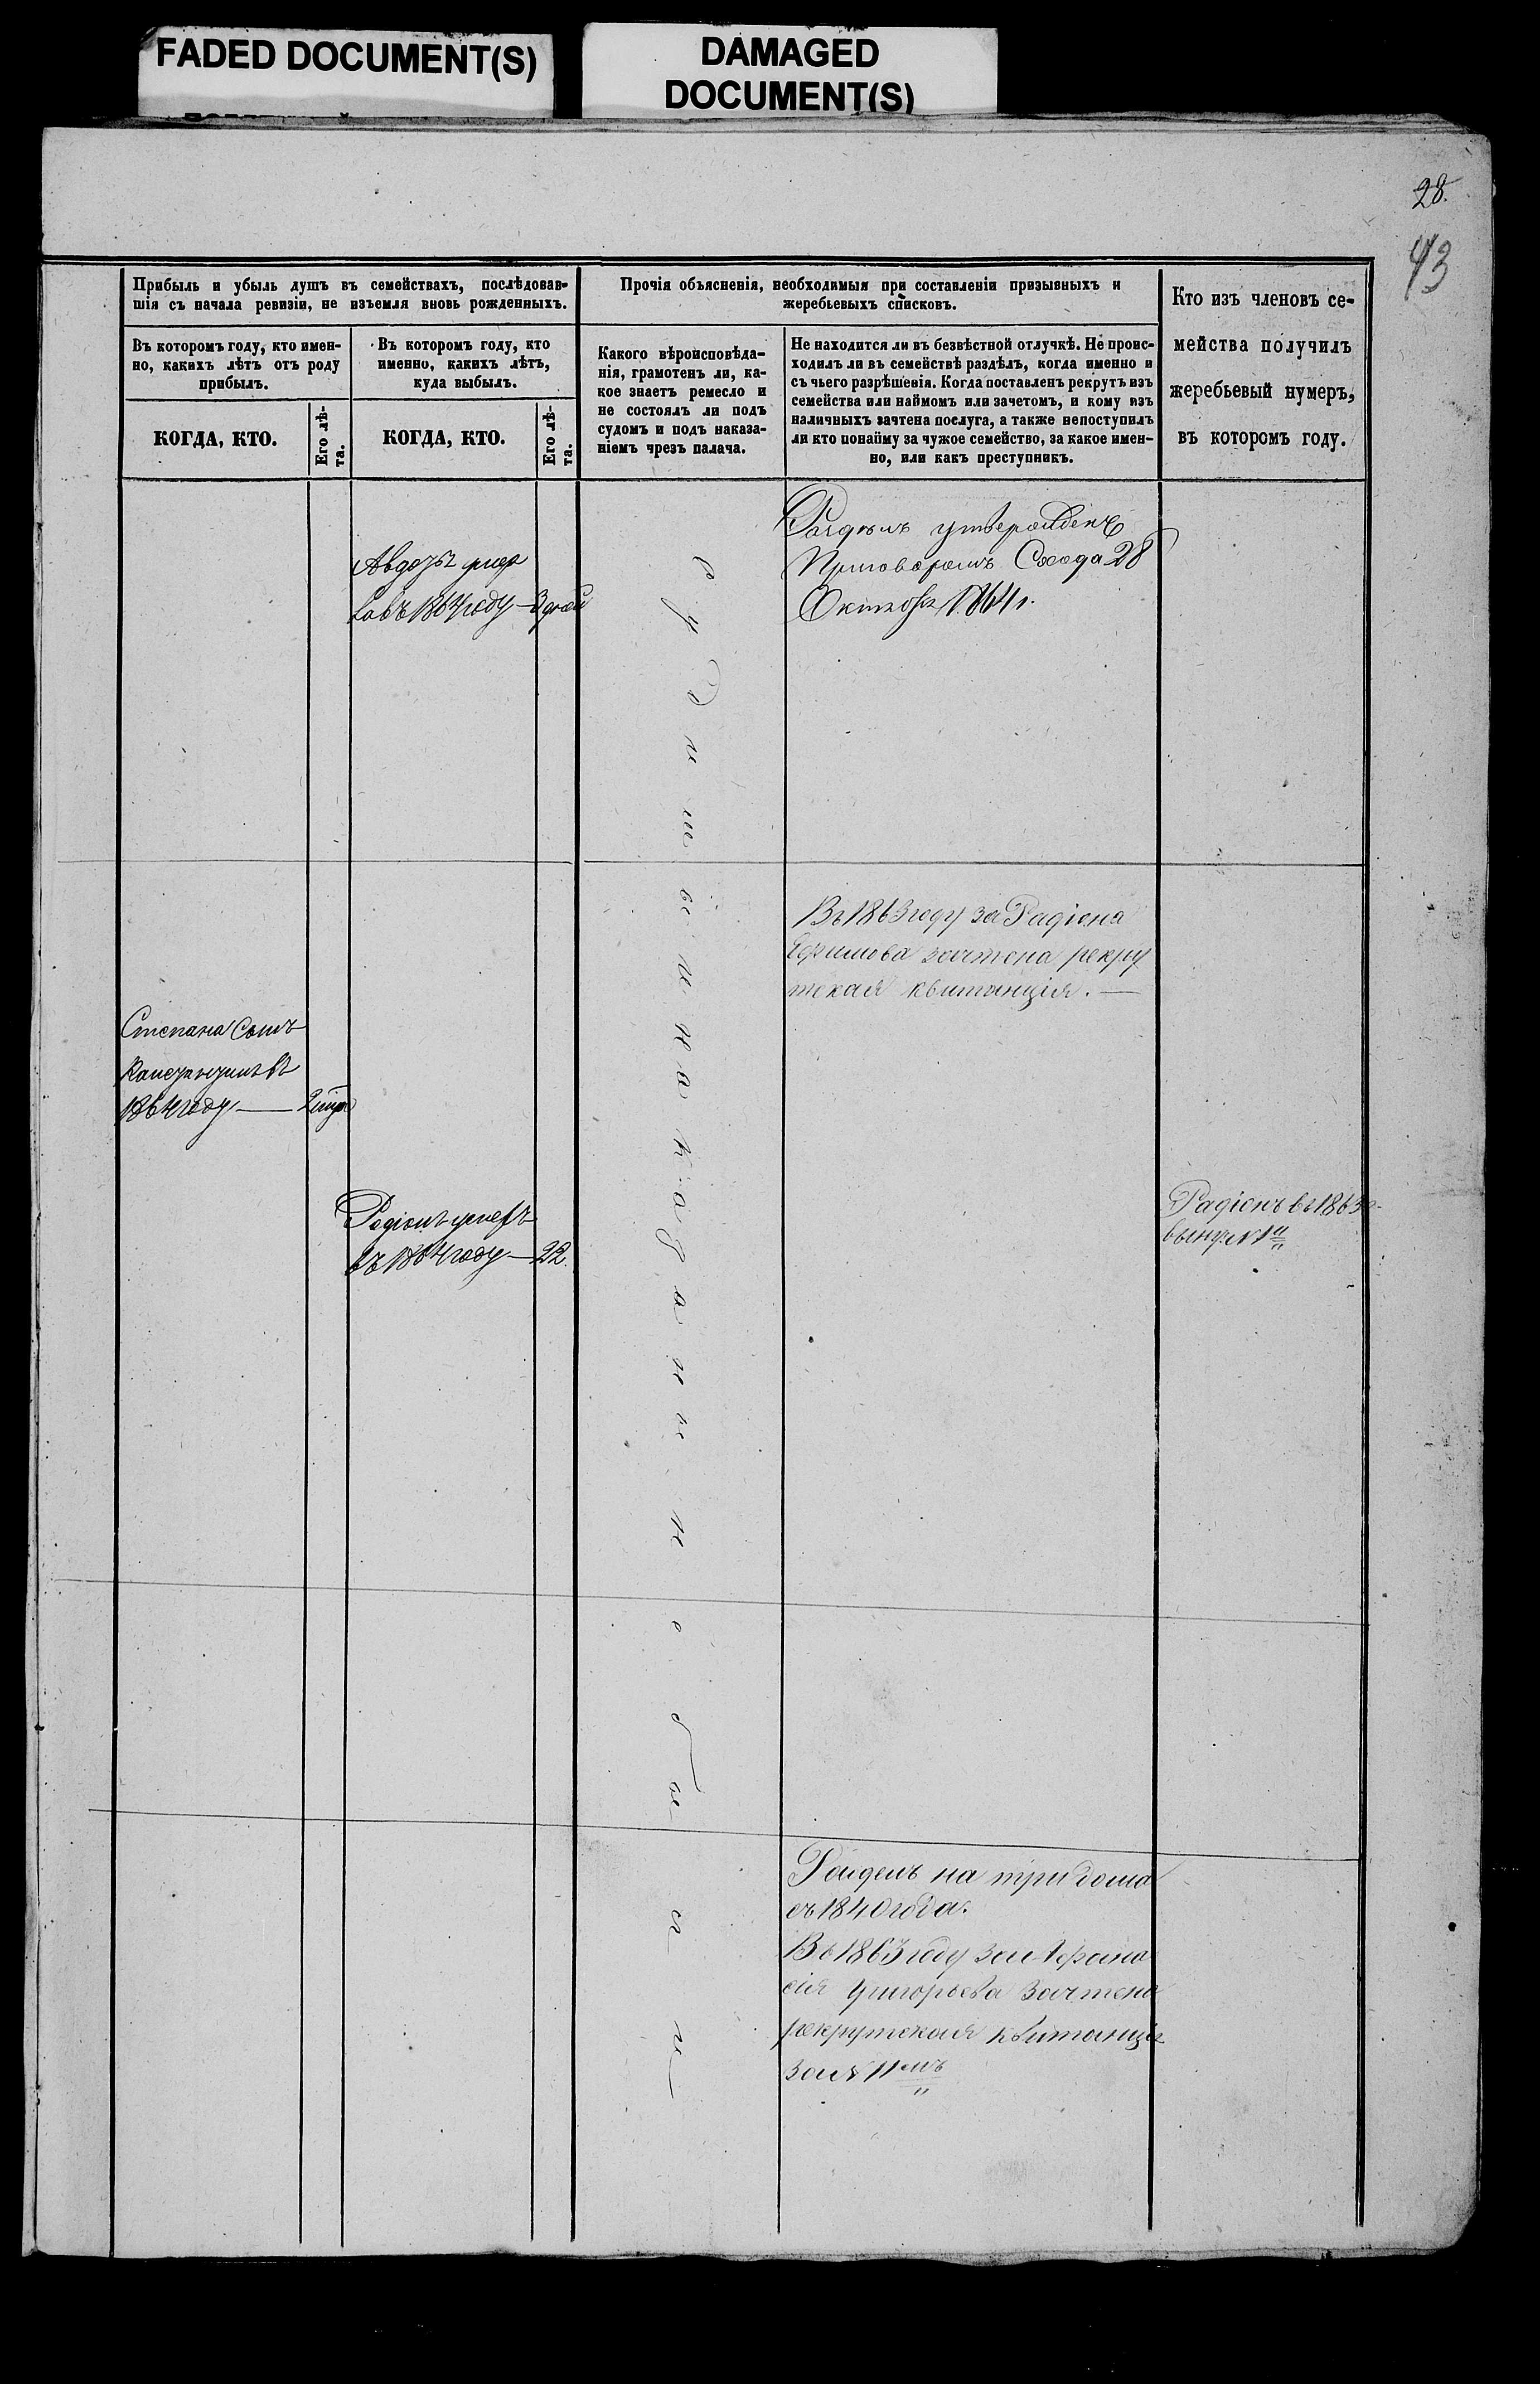 FADED DOCUMENT(S)
DAMAGED
DOCUMENT(S)
28.
43
Прибыль и убыль душъ въ семействахъ, послѣдовав-
шія съ начала ревизіи, не изъемля вновь рожденныхъ.
Въ которомъ году, кто имен-
но, какихъ лѣтъ отъ роду
прибылъ.
КОГДА, КТО.
Его лѣ-
та.
Въ которомъ году, кто
именно, какихъ лѣтъ,
куда выбылъ.
КОГДА, КТО.
Его лѣ-
та.
Прочія объясненія, необходимыя при составленіи призывныхъ и
жеребьевыхъ списковъ.
Какого вѣроисповѣда-
нія, грамотенъ ли, ка-
кое знаетъ ремесло и
не состоялъ ли подъ
судомъ и подъ наказа-
ніемъ чрезъ палача.
Не находится ли въ безвѣстной отлучкѣ. Не проис-
ходилъ ли въ семействѣ раздѣлъ, когда именно и
съ чьего разрѣшенія. Когда поставленъ рекрутъ изъ
семейства или наймомъ или зачетомъ, и кому изъ
наличныхъ зачтена послуга, а также непоступилъ
ли кто понайму за чужое семейство, за какое имен-
но, или какъ преступникъ.
Кто изъ членовъ се-
мейства получилъ
жеребьевый нумеръ,
въ которомъ году.
Раздѣлъ утвержденъ
Приговоромъ Схода 28
Октября 1864 г.
въ 1864 году — 3
Въ 1863 году за Радіона
Ефимова зачтена рекру
тская квитанція. —
Степана Сынъ
въ
1864 году —
Радіонъ умеръ
въ 1864 году — 22.
Радіонъ въ 1863 г.
вынул №
Раздѣлъ на три дома
съ 1840 года.
Въ 1863 году за Афана
сія Григорьева зачтена
рекрутская квитанція
за № 11 емъ